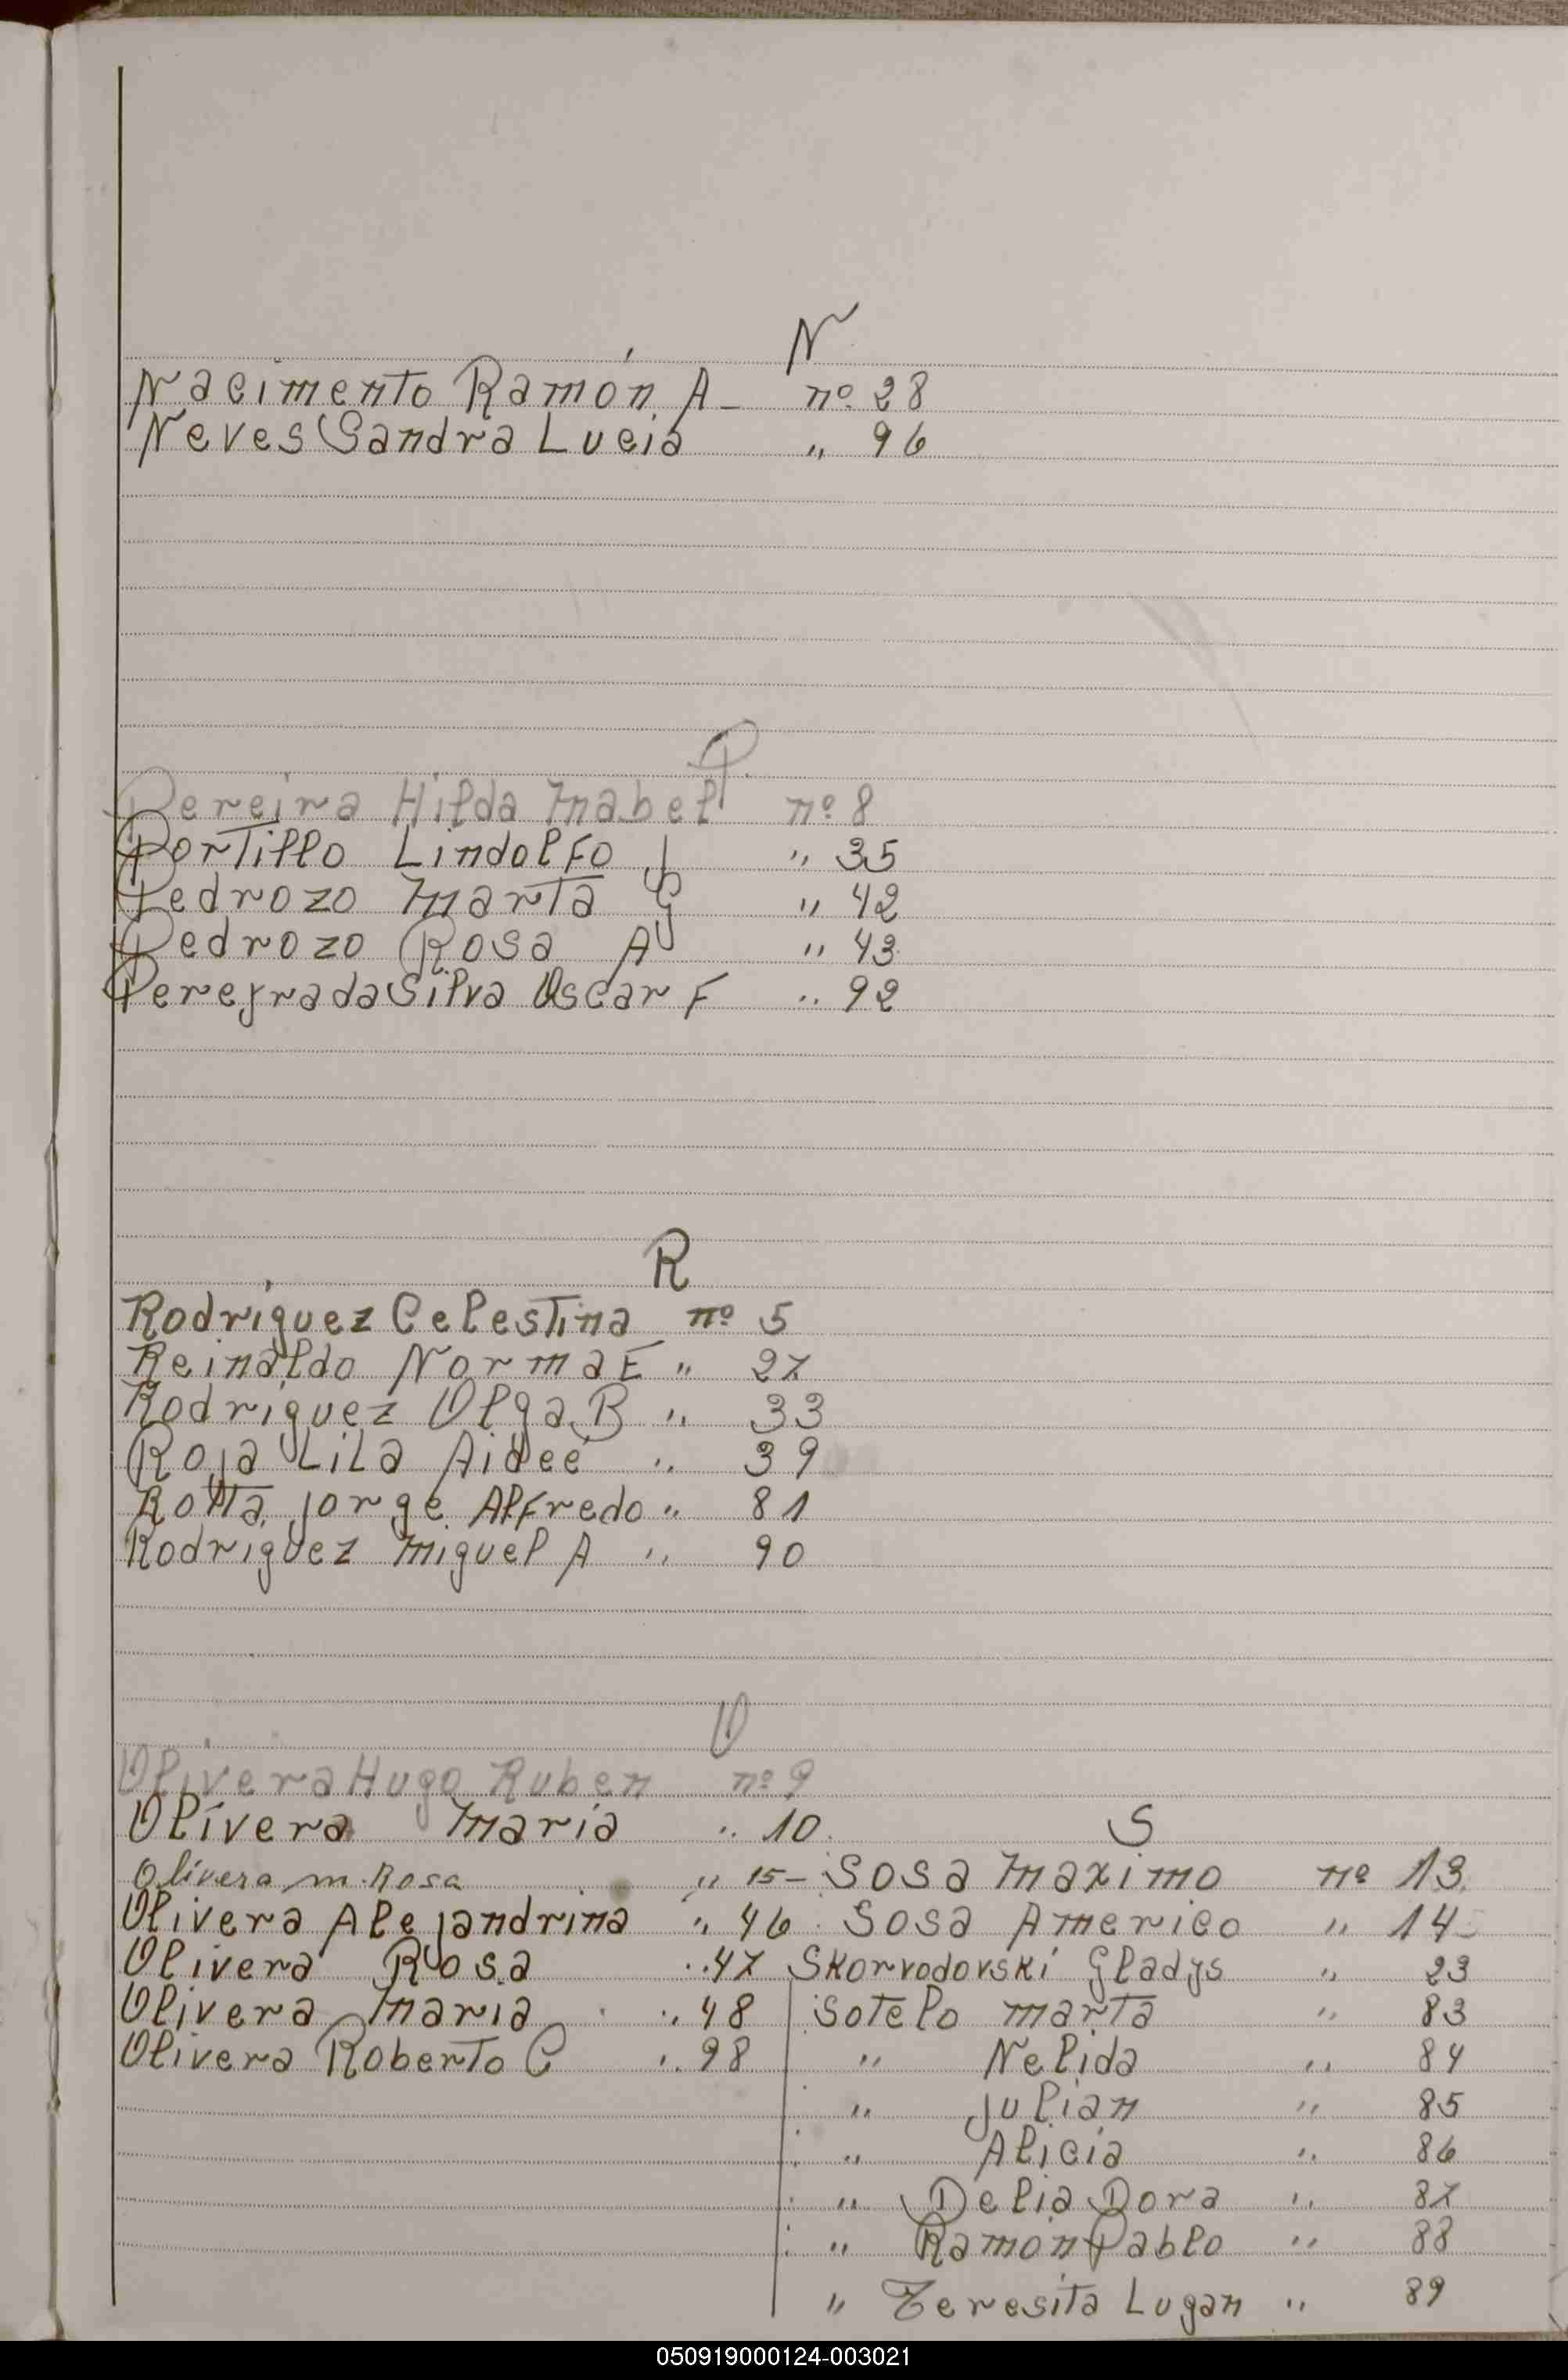 N
Nacimento Ramón A - nº 28
Neves Sandra Lucia " 96
P
Pereira Hilda Mabel nº 8
Portillo Lindolfo J " 35
Pedrozo Marta G " 42
Pedrozo Rosa A " 43
Pereyra da Silva Oscar F " 92
R
Rodríguez Celestina nº 5
Reinaldo Norma E " 27
Rodriguez Olga B " 33
Roja Lila Aideé " 39
Rotta Jorge Alfredo " 81
Rodriguez Miguel A " 90
O
Olivera Hugo Ruben nº 9
Olivera Maria " 10
Olivera M. Rosa " 15 -
Olivera Alejandrina " 46
Olivera Rosa " 47
Olivera Maria " 48
Olivera Roberto C " 98
S
Sosa Maximo nº 13
Sosa Americo " 14
Skorvodovski Gladys " 23
Sotelo Marta " 83
" Nelida " 84
" Julian " 85
" Alicia " 86
" Delia Dora " 87
" Ramón Pablo " 88
" Teresita Lugan " 89
050919000124-003021